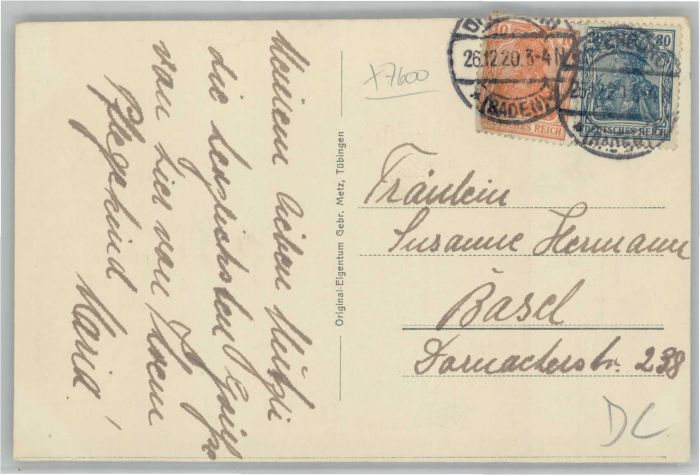 Meinem lieben
die herzlichsten
von hier von
Pflegekind Maria!
Original-Eigentum Gebr. Metz, Tübingen
+7600
10
26.12.20. 3-4 N
* (BADEN)
DEUTSCHES REICH
80
DEUTSCHES REICH
Fräulein
Susanne Hermann
Basel
Dornacherstr. 238
DC